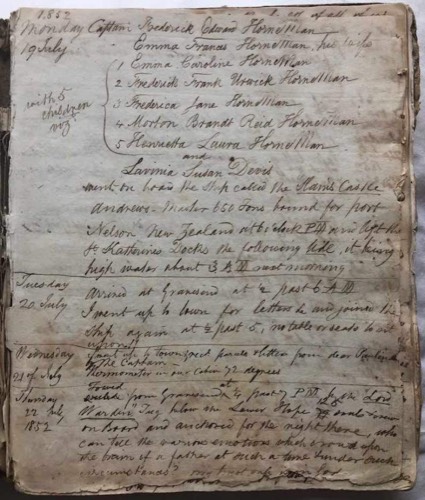 1852
Monday Captain Frederick Edward Horneman
19 July Emma Frances Horneman, his wife
1 Emma Caroline Horneman
2 Frederick Frank Urwick Horneman
with 5 children viz
3 Frederica Jane Horneman
4 Morton Brandt Reid Horneman
5 Henrietta Laura Horneman
and
Lavinia Susan Devis
went on board the Ship called the Maori Castle
Andrews Master 650 Tons bound for port
Nelson New Zealand at 6 o'clock PM and left the
St Katherines Docks the following tide, it being
high water about 3 AM next morning
Tuesday
20 July
Arrived at Gravesend at ½ past 6 AM
I went up to town for letters &c and joined the
Ship again at ½ past 5, no table or seats to sit
upon
Wednesday
21 of July
went up to town from dear
the Captain
thermometer in our Cabin 72 degrees
Thursday
22 July
1852
Towed
from Gravesend at ½ past 7 PM by the Lord
Warden Tug below the Lower Hope
on Board and anchored for the night there, who
can tell the various emotions which crowd upon
the brain of a father at such a time & under such
circumstances